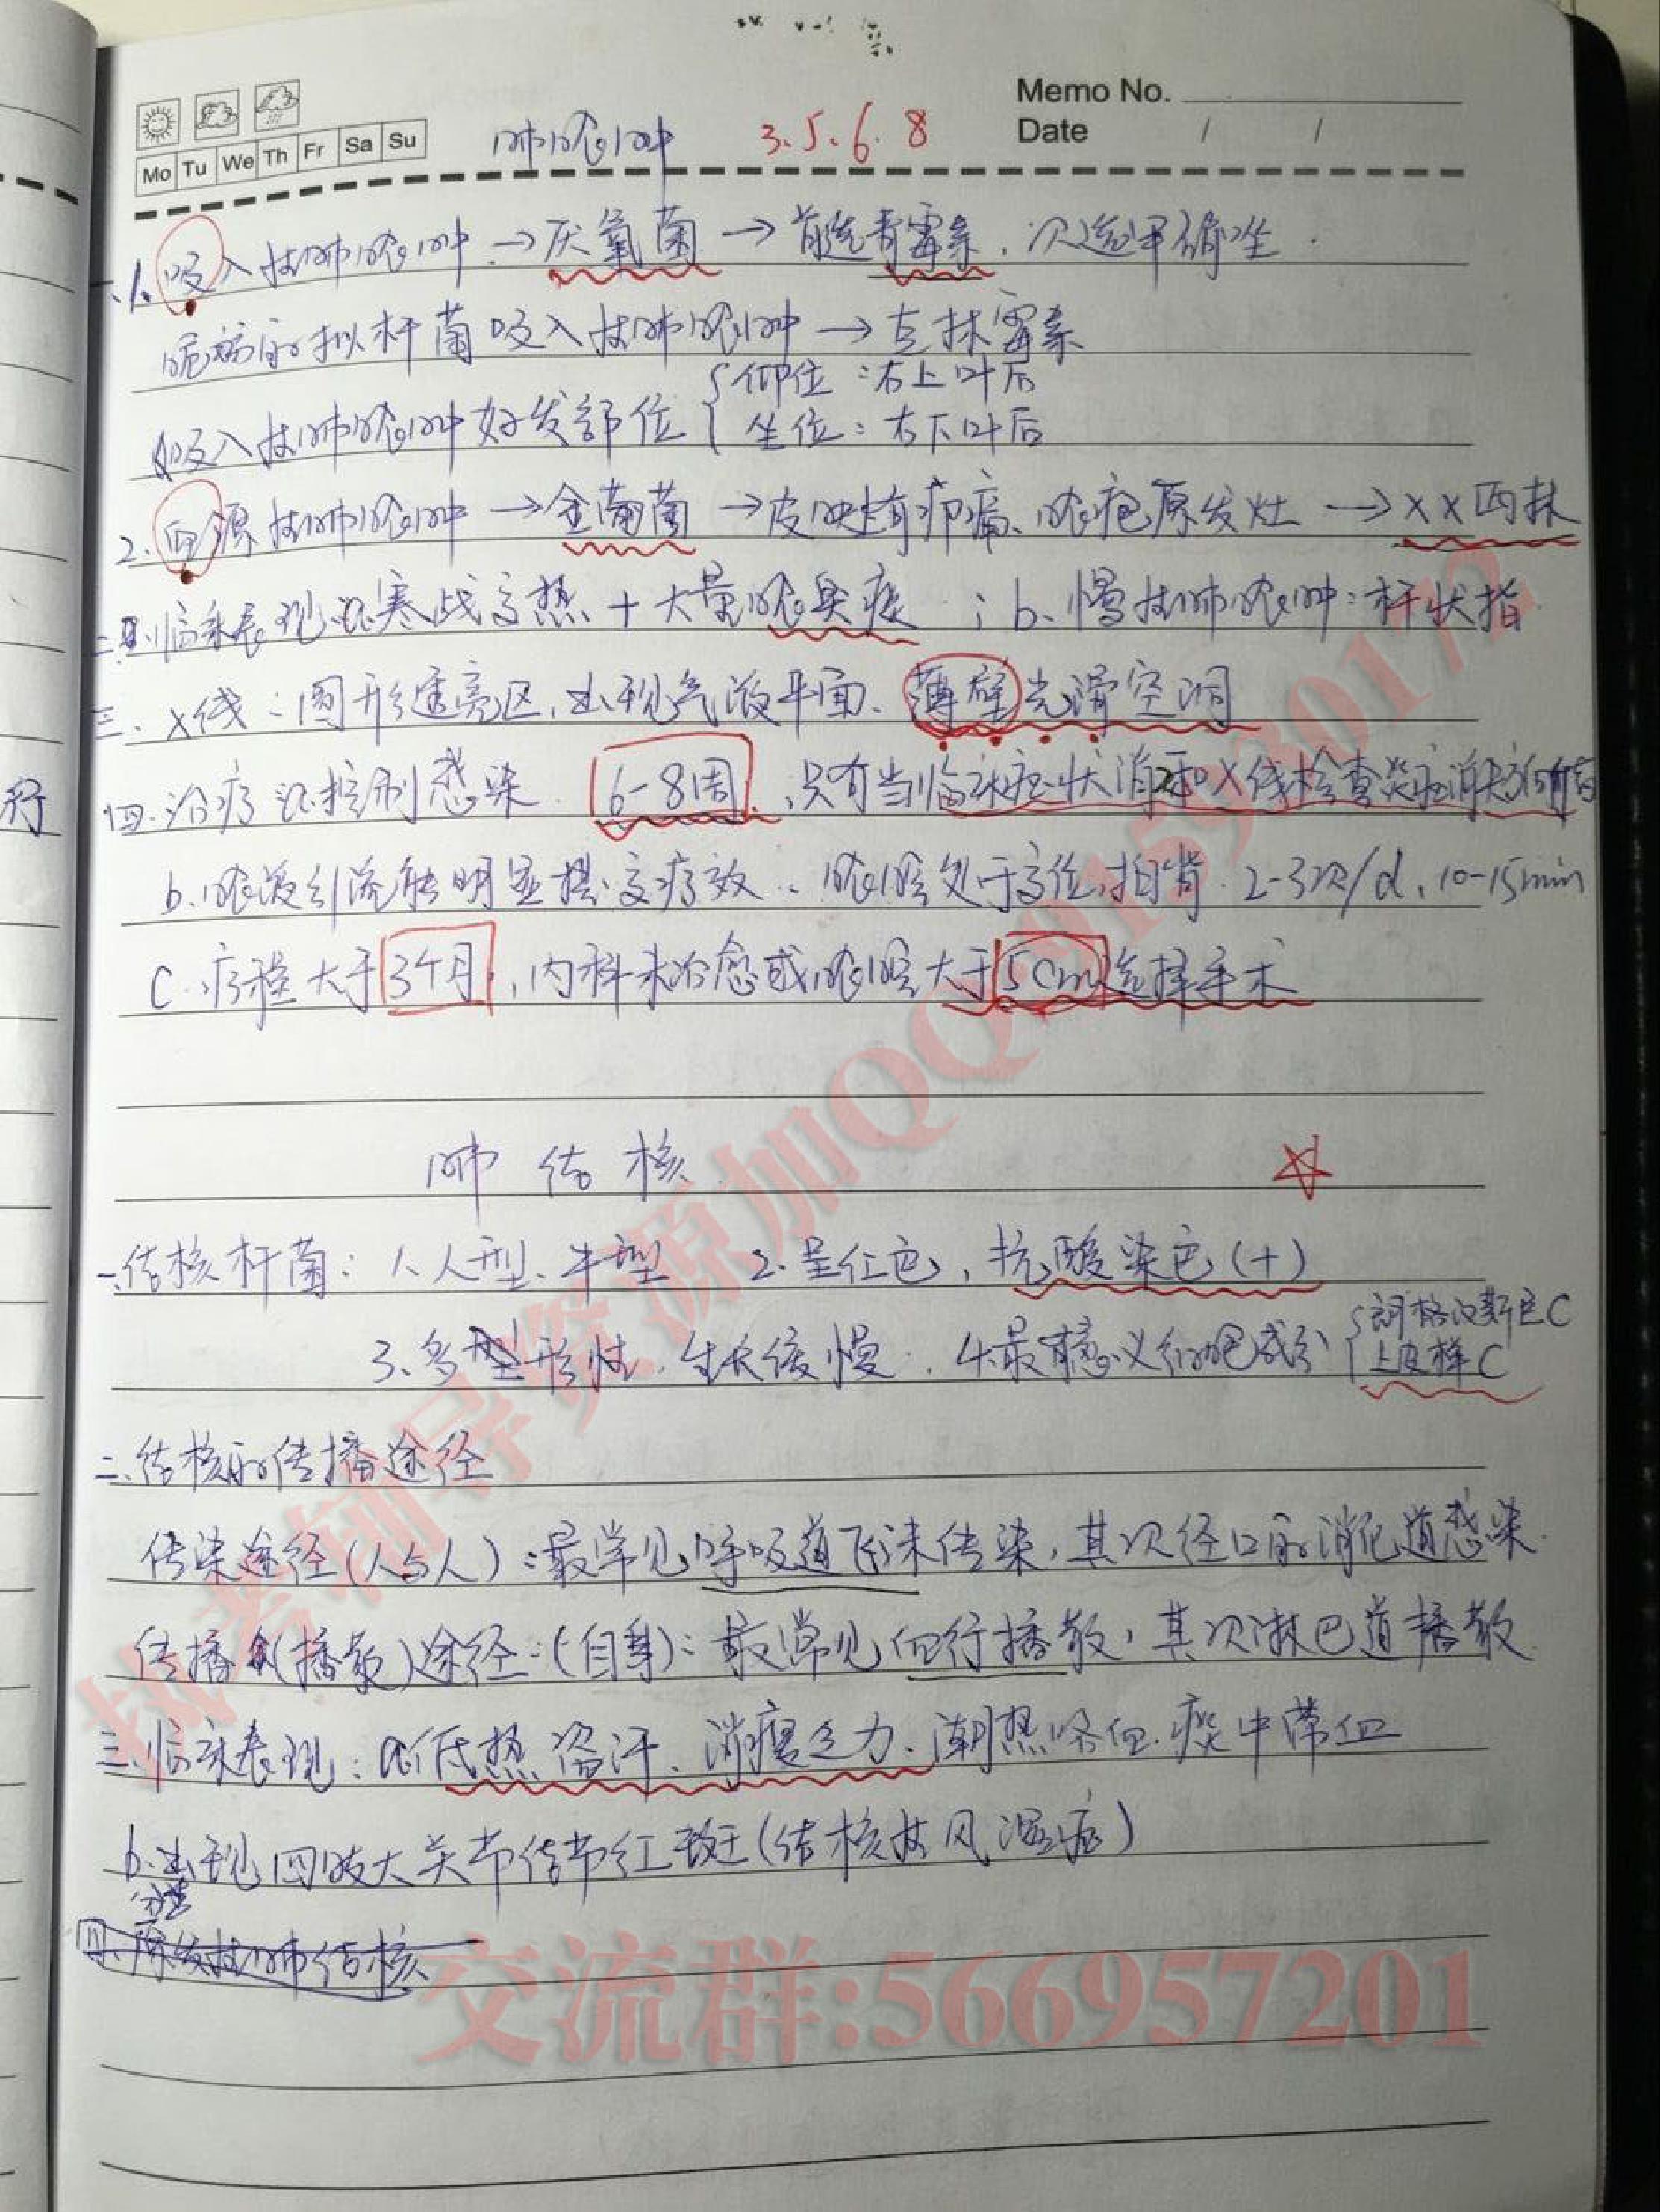 Memo No.
Date / /
Mo Tu We Th Fr Sa Su
肺脓肿 3.5.6.8
一.1.吸入性肺脓肿→厌氧菌→首选青霉素,次选甲硝唑.
脆弱的拟杆菌吸入性肺脓肿→克林霉素
吸入性肺脓肿好发部位{仰位:右上叶后
坐位:右下叶后
2.血源性肺脓肿→金葡菌→皮肤有疖痈、脓疱原发灶→XX西林
二.临床表现 a.寒战高热+大量脓臭痰;b.慢性肺脓肿:杵状指
三.X线:圆形透亮区,出现气液平面、薄壁光滑空洞
四.治疗 a.控制感染 6-8周,只有当临床症状消和X线检查炎症消失
b.脓液引流能明显提高疗效.脓腔处于高位,拍背.2-3次/d,10-15min
C.疗程大于3个月,内科未治愈或脓腔大于5Cm选择手术
肺结核
一.结核杆菌:1.人型、牛型 2.呈红色,抗酸染色(+)
3.多形性,生长缓慢.4.最有意义细胞成分{朗格汉斯巨C
上皮样C
二.结核的传播途径
传染途径(人与人):最常见呼吸道飞沫传染,其次经口的消化道感染.
传播(播散)途径:(自身):最常见血行播散,其次淋巴道播散
三.临床表现:a.低热盗汗、消瘦乏力、潮热咯血.痰中带血
b.出现四肢大关节结节红斑(结核性风湿症)
分类
四.原发性肺结核
行
执考辅导资源加QQ915930172
交流群:566957201